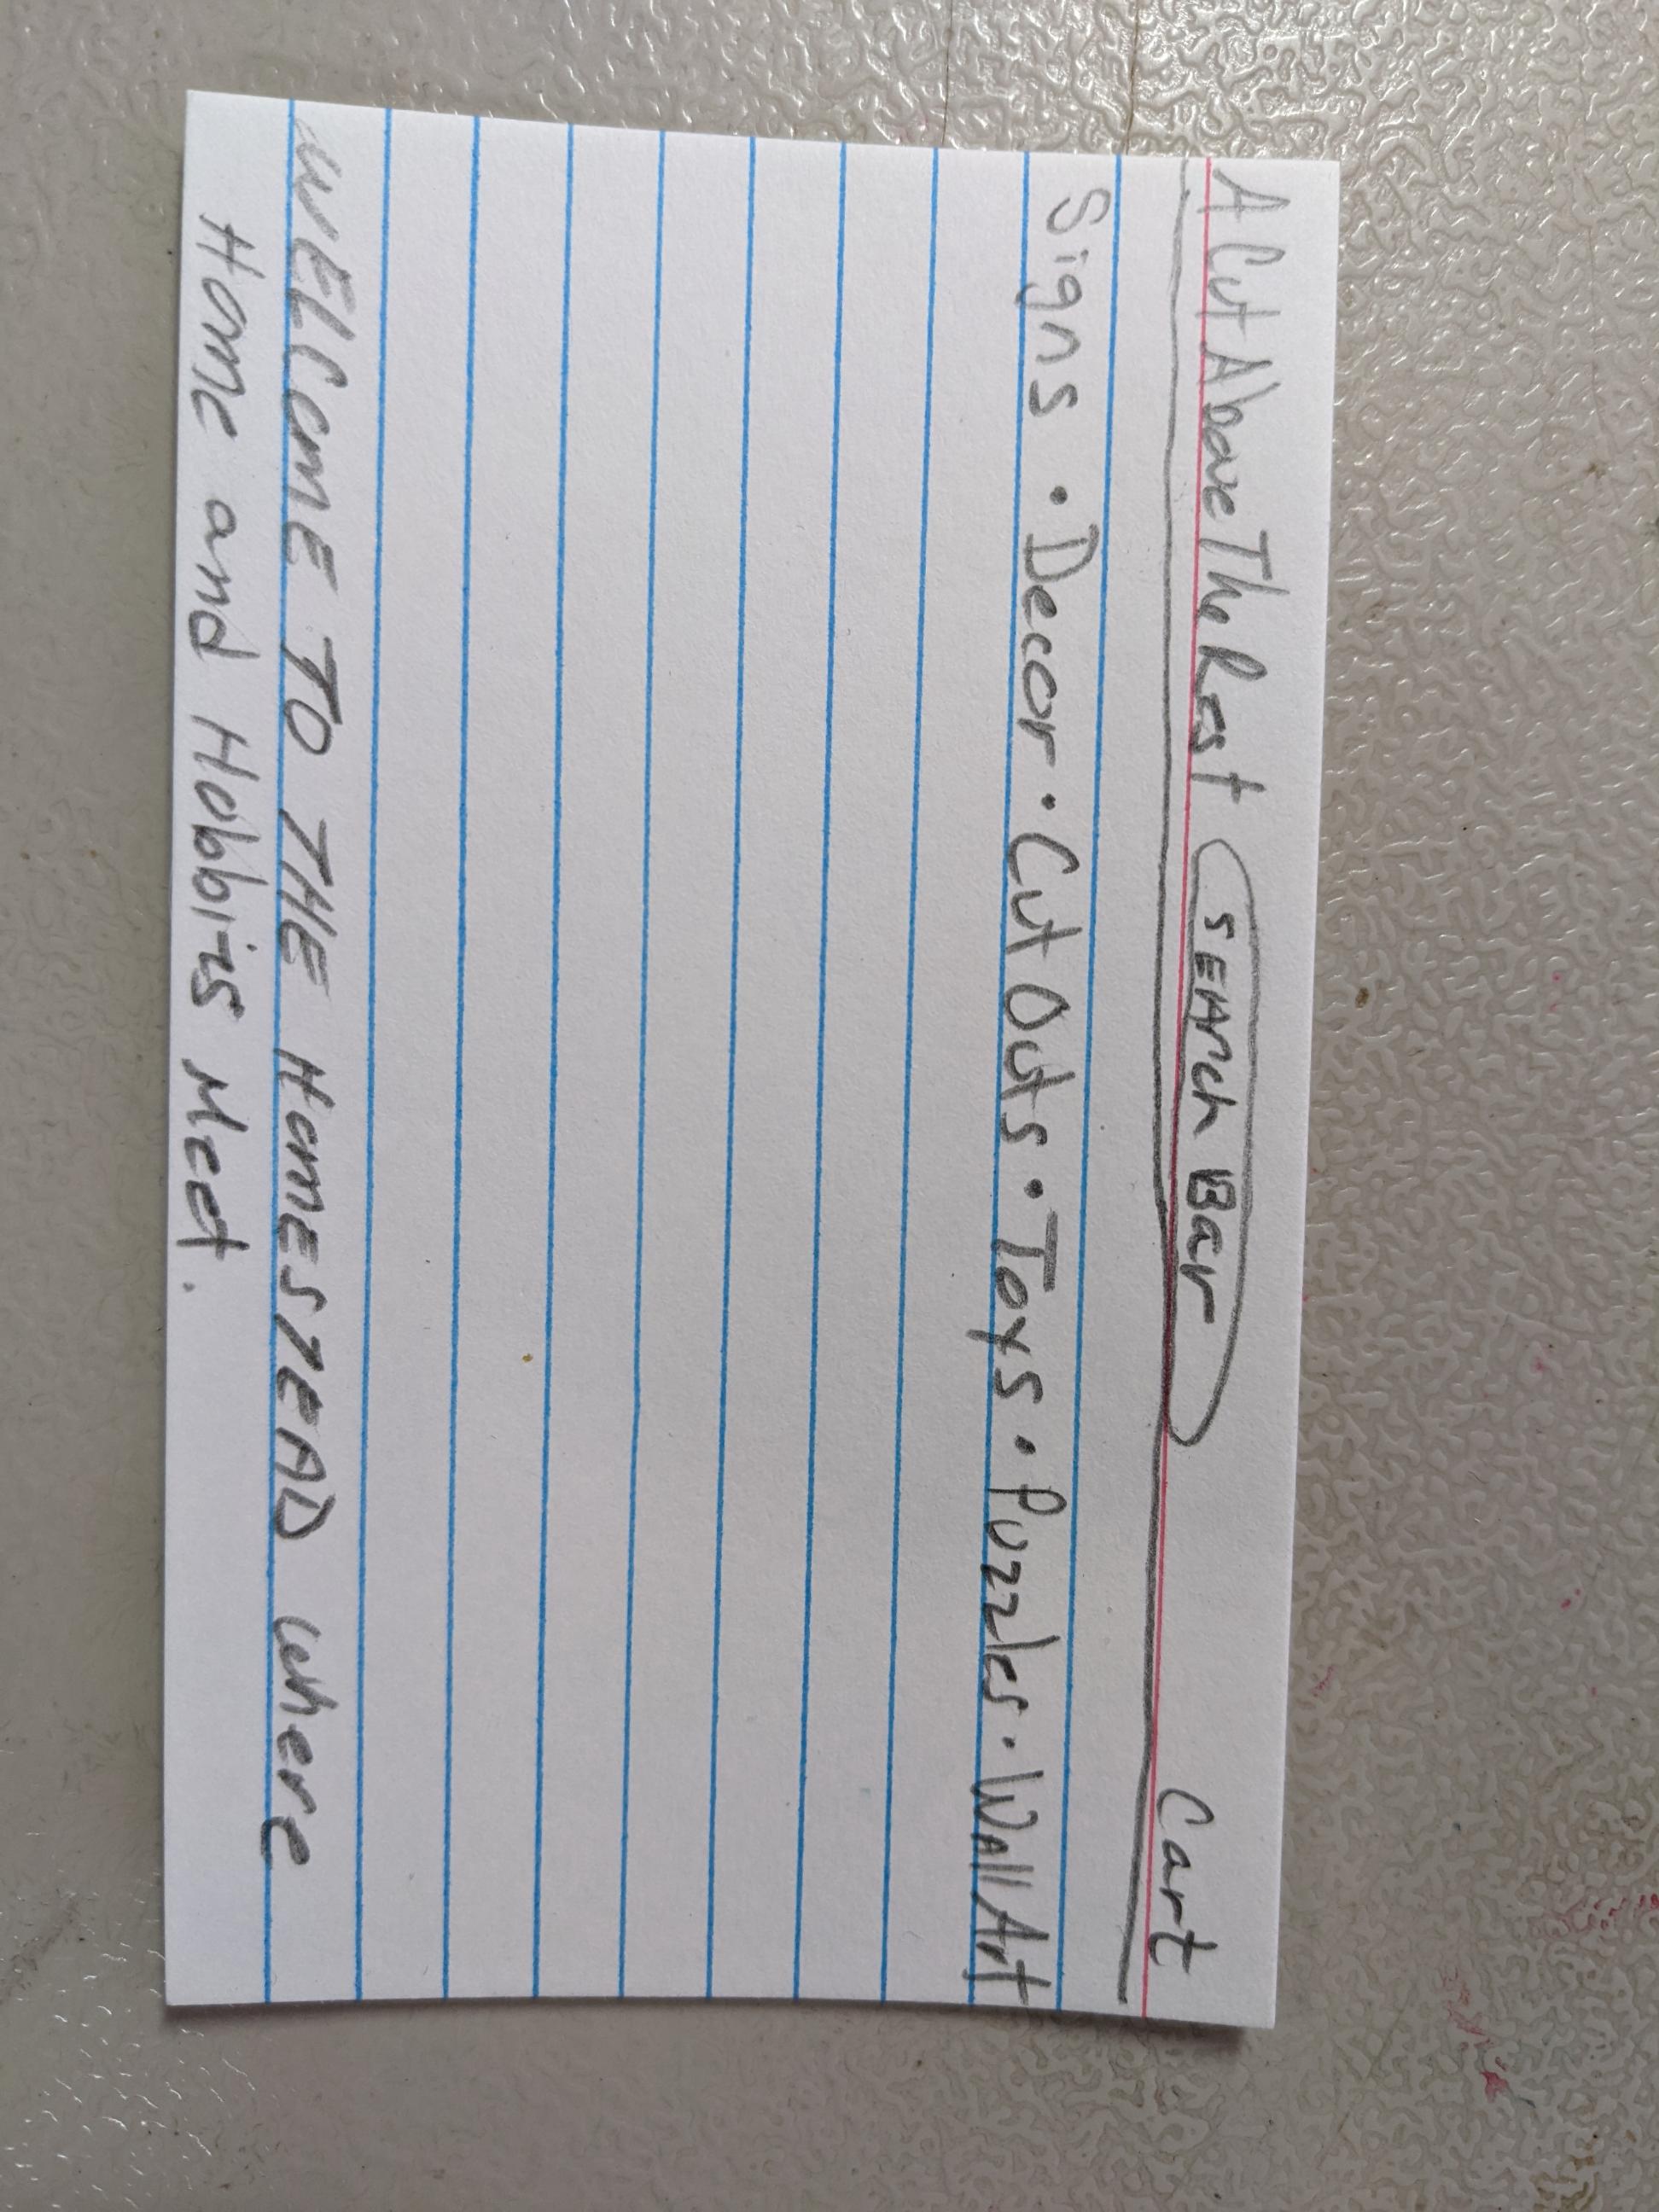 A Cut Above The Rest SEArch Bar Cart
Signs • Decor • Cut Outs • Toys • Puzzles • Wall Art
WELCOME TO THE HOMESTEAD where
Home and Hobbies Meet.